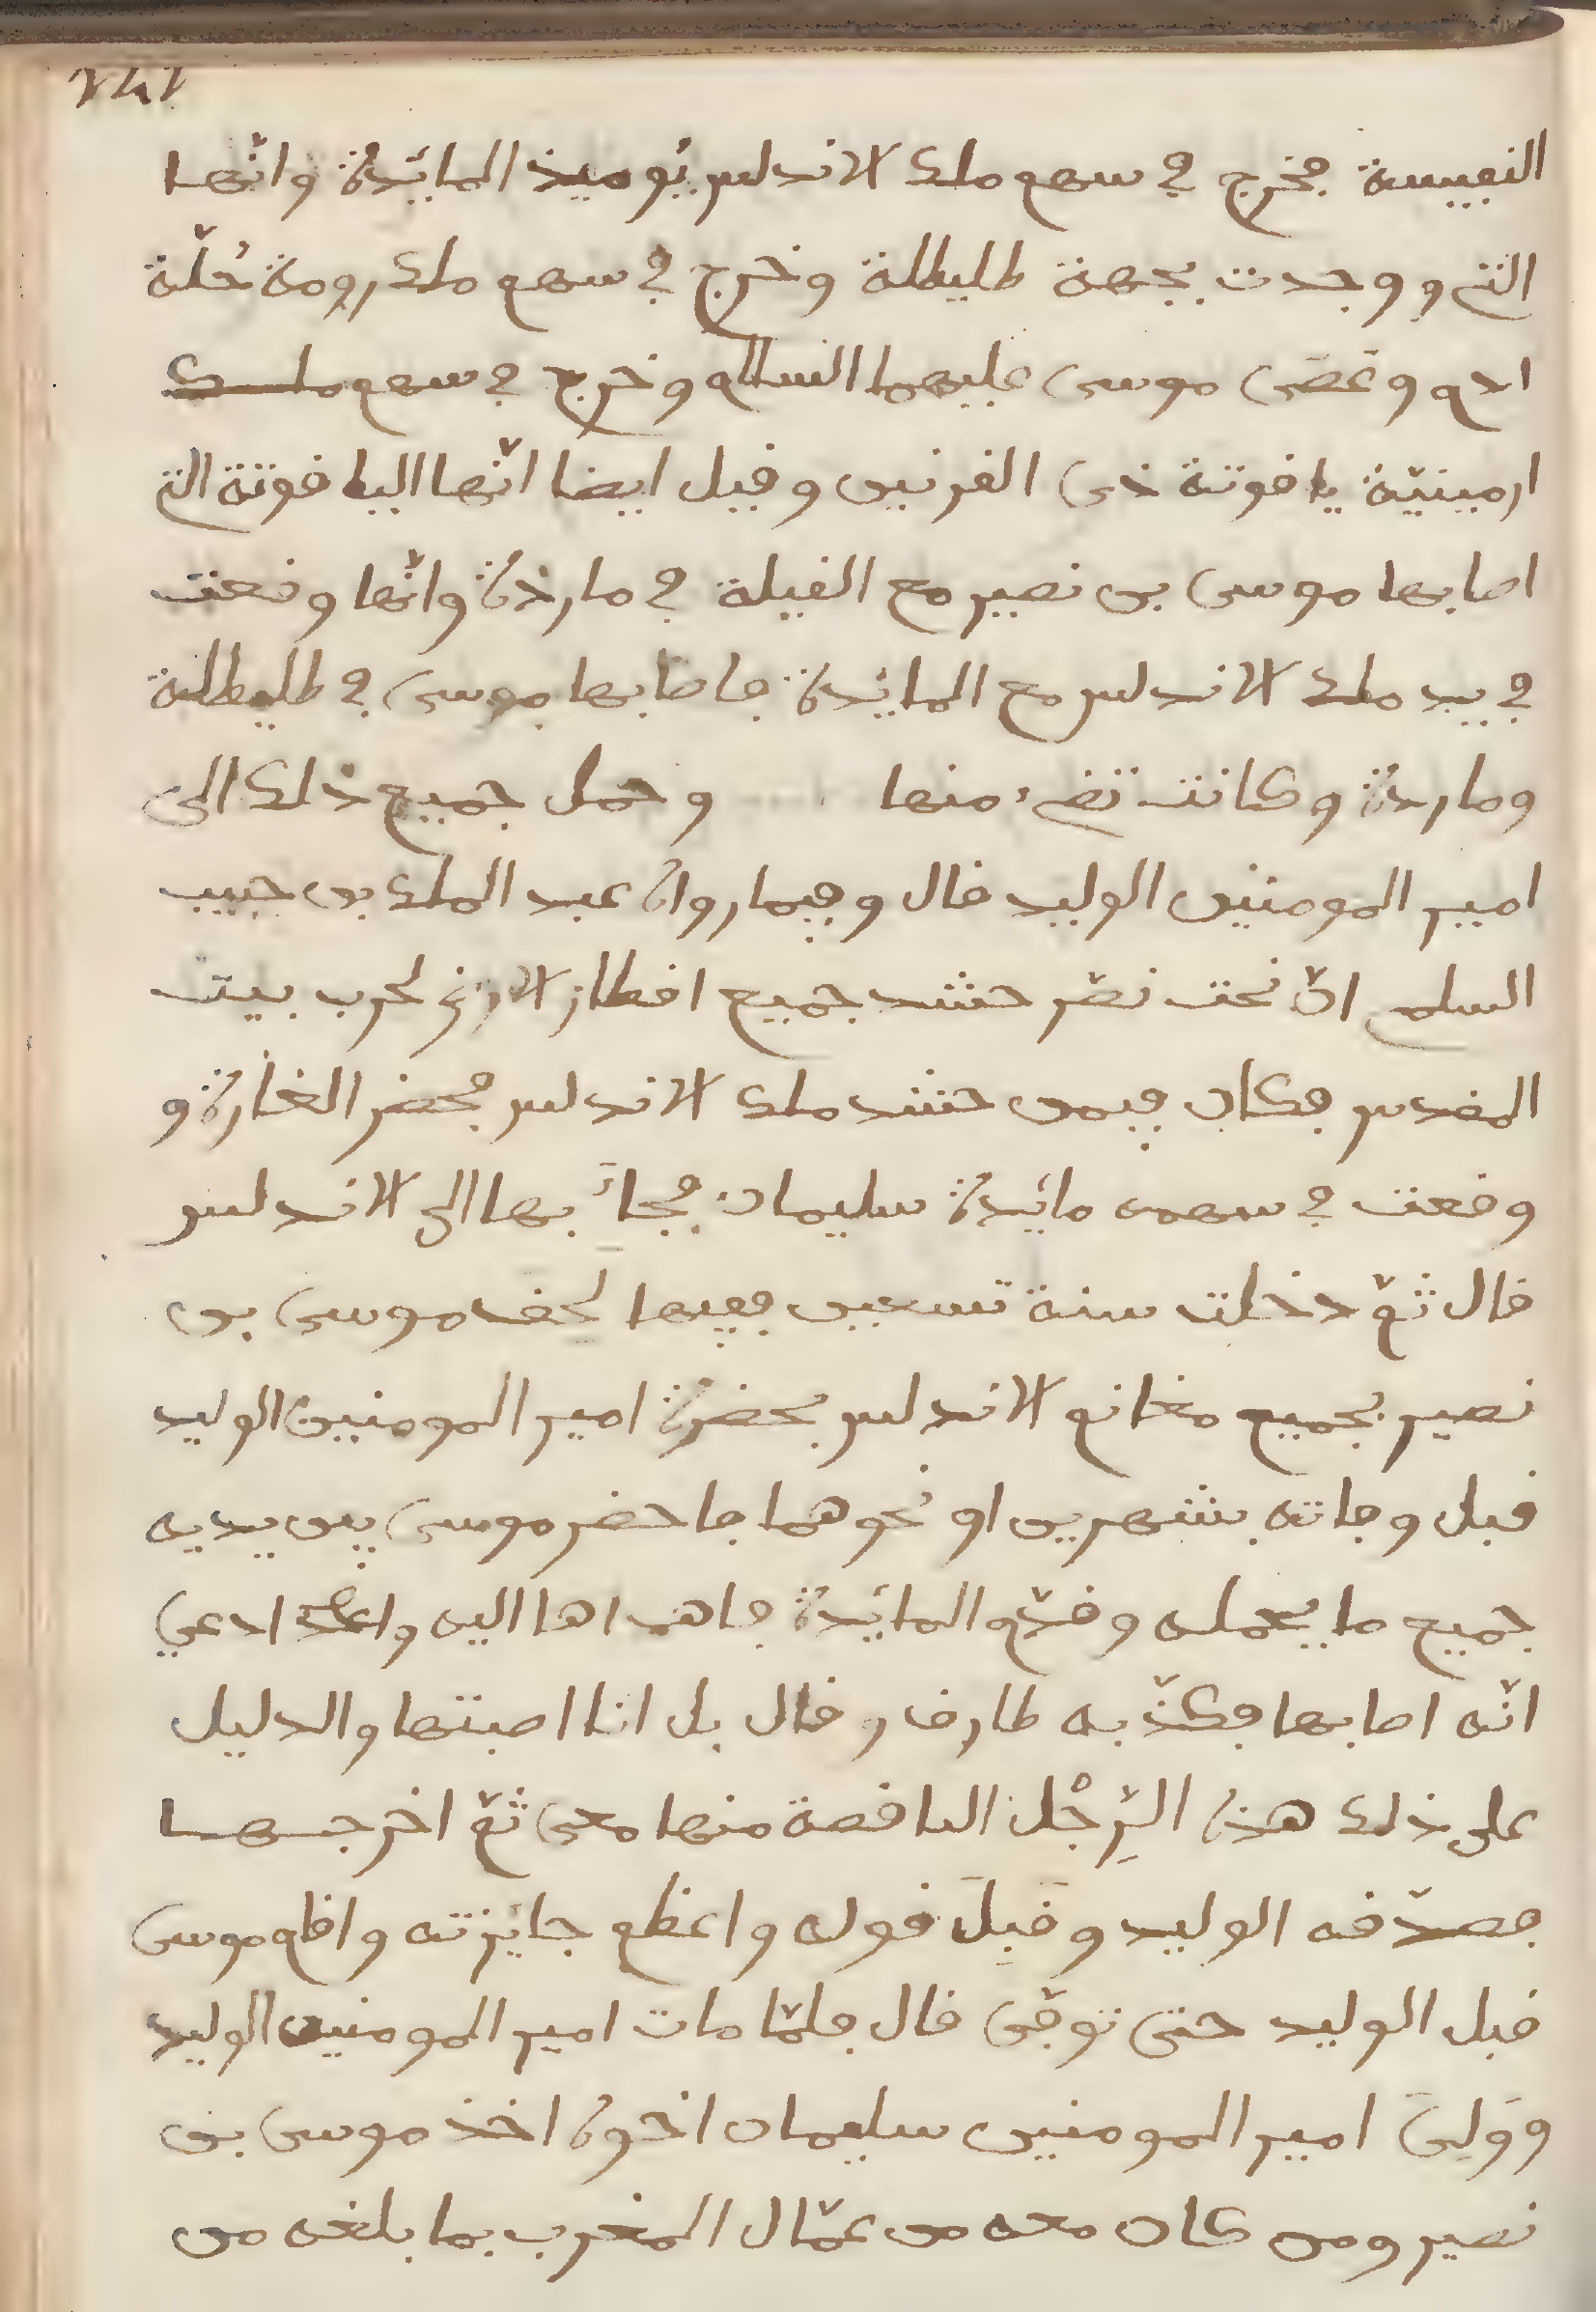 النفيسة فخرج في سهم ملك الاندلس يوميذ المائدة وانّها
التي ووجدت بجهة طليطلة وخرج في سهم ملك رومة حُلّة
ادم وعَصَى موسى عليهما السلام وخرج في سهم ملك
ارمينيّة ياقوتة ذى القرنين وقيل ايضا انّها اليا قوتة التي
اصابها موسى بن نصير مع القيلة في ماردة وانّها وقعت
في يد ملك الاندلس مع المائدة فاصابها موسى في طليطلة
وماردة وكانت تضيء منها وحمل جميع ذلك الى
امير المومنين الوليد قال وفيما روا عبد الملك بن حبيب
السلمي انّ بخت نصّر حشد جميع اقطار الارض لحرب بيت
المقدس فكان فيمن حشد ملك الاندلس فحضر الغارة و
وقعت في سهمه مائدة سليمان فجاء بها الى الاندلس
قال ثمّ دخلت سنة تسعين ففيها لحق موسى بن
نصير بجميع مغانم الاندلس بحضرة امير المومنين الوليد
قبل وفاته بشهرين او نحوهما فاحضر موسى بين يديه
جميع ما يحمله وقدّم المائدة فاهداها اليه ادعي
انّه اصابها فكذّبه طارق وقال بل انا اصبتها والدليل
على ذلك هذه الرِّجْل الناقصة منها معى ثمّ اخرجها
فصدّقه الوليد وقَبِلَ قوله واعظم جائزته واقام موسى
قبل الوليد حتى توفّى قال فلمّا مات امير المومنين الوليد
ووَلِىَ امير المومنين سليمان اخوه اخذ موسى بن
نصير ومن كان معه من عمّال المغرب بما بلغه من